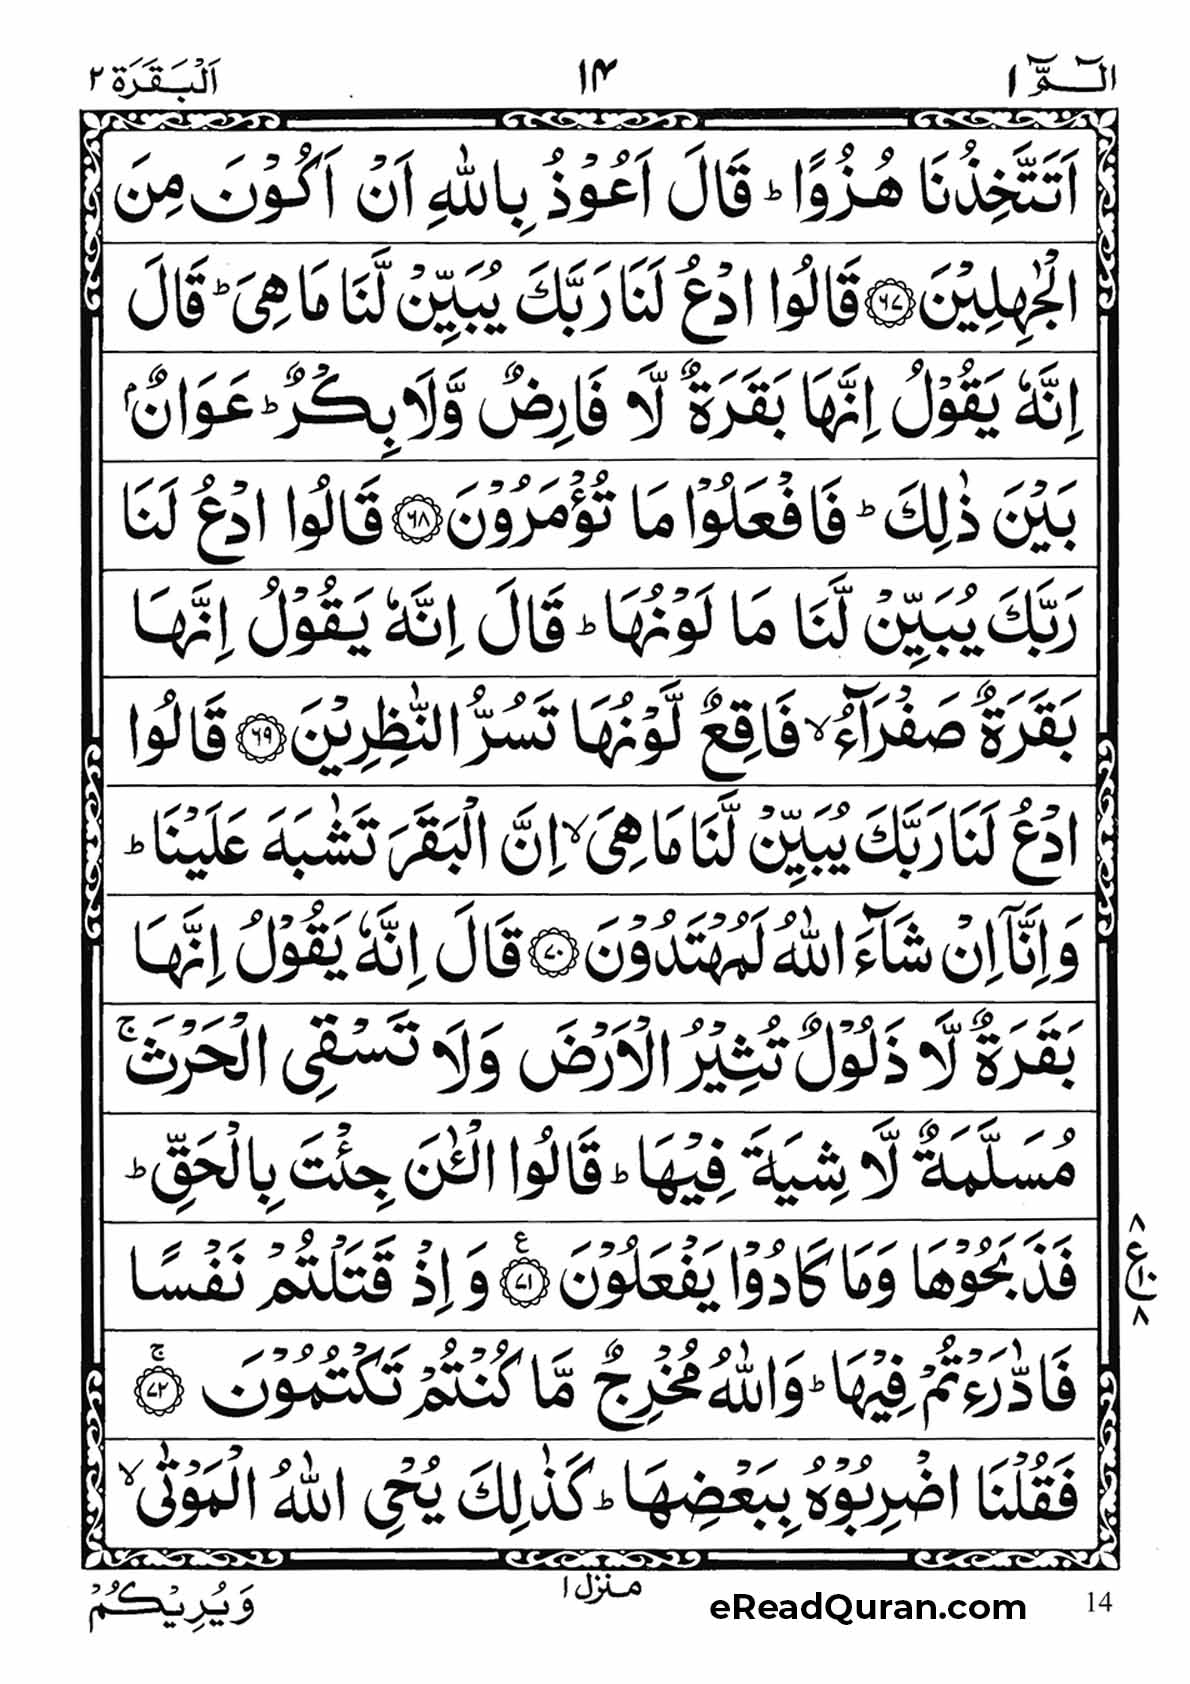 الٓمّٓ ١
١٤
اَلْبَقَرَة ٢
اَتَتَّخِذُنَا هُزُوًا ؕ قَالَ اَعُوْذُ بِاللّٰهِ اَنْ اَكُوْنَ مِنَ
الْجٰهِلِيْنَ ﴿٦٧﴾ قَالُوا ادْعُ لَنَا رَبَّكَ يُبَيِّنْ لَّنَا مَا هِىَ ؕ قَالَ
اِنَّهٗ يَقُوْلُ اِنَّهَا بَقَرَةٌ لَّا فَارِضٌ وَّلَا بِكْرٌ ؕ عَوَانٌۢ
بَيْنَ ذٰلِكَ ؕ فَافْعَلُوْا مَا تُؤْمَرُوْنَ ﴿٦٨﴾ قَالُوا ادْعُ لَنَا
رَبَّكَ يُبَيِّنْ لَّنَا مَا لَوْنُهَا ؕ قَالَ اِنَّهٗ يَقُوْلُ اِنَّهَا
بَقَرَةٌ صَفْرَآءُ ۙ فَاقِعٌ لَّوْنُهَا تَسُرُّ النّٰظِرِيْنَ ﴿٦٩﴾ قَالُوا
ادْعُ لَنَا رَبَّكَ يُبَيِّنْ لَّنَا مَا هِىَ ۙ اِنَّ الْبَقَرَ تَشٰبَهَ عَلَيْنَا ؕ
وَاِنَّاۤ اِنْ شَآءَ اللّٰهُ لَمُهْتَدُوْنَ ﴿٧٠﴾ قَالَ اِنَّهٗ يَقُوْلُ اِنَّهَا
بَقَرَةٌ لَّا ذَلُوْلٌ تُثِيْرُ الْاَرْضَ وَلَا تَسْقِى الْحَرْثَ ۚ
مُسَلَّمَةٌ لَّا شِيَةَ فِيْهَا ؕ قَالُوا الْـٰٔنَ جِئْتَ بِالْحَقِّ ؕ
فَذَبَحُوْهَا وَمَا كَادُوْا يَفْعَلُوْنَ ﴿٧١﴾ ع وَاِذْ قَتَلْتُمْ نَفْسًا
٨
ع
١٠
٨
فَادّٰرَءْتُمْ فِيْهَا ؕ وَاللّٰهُ مُخْرِجٌ مَّا كُنْتُمْ تَكْتُمُوْنَ ﴿٧٢﴾ ۚ
فَقُلْنَا اضْرِبُوْهُ بِبَعْضِهَا ؕ كَذٰلِكَ يُحْىِ اللّٰهُ الْمَوْتٰى ۙ
وَيُرِيْكُمْ
منزل ١
eReadQuran.com
14